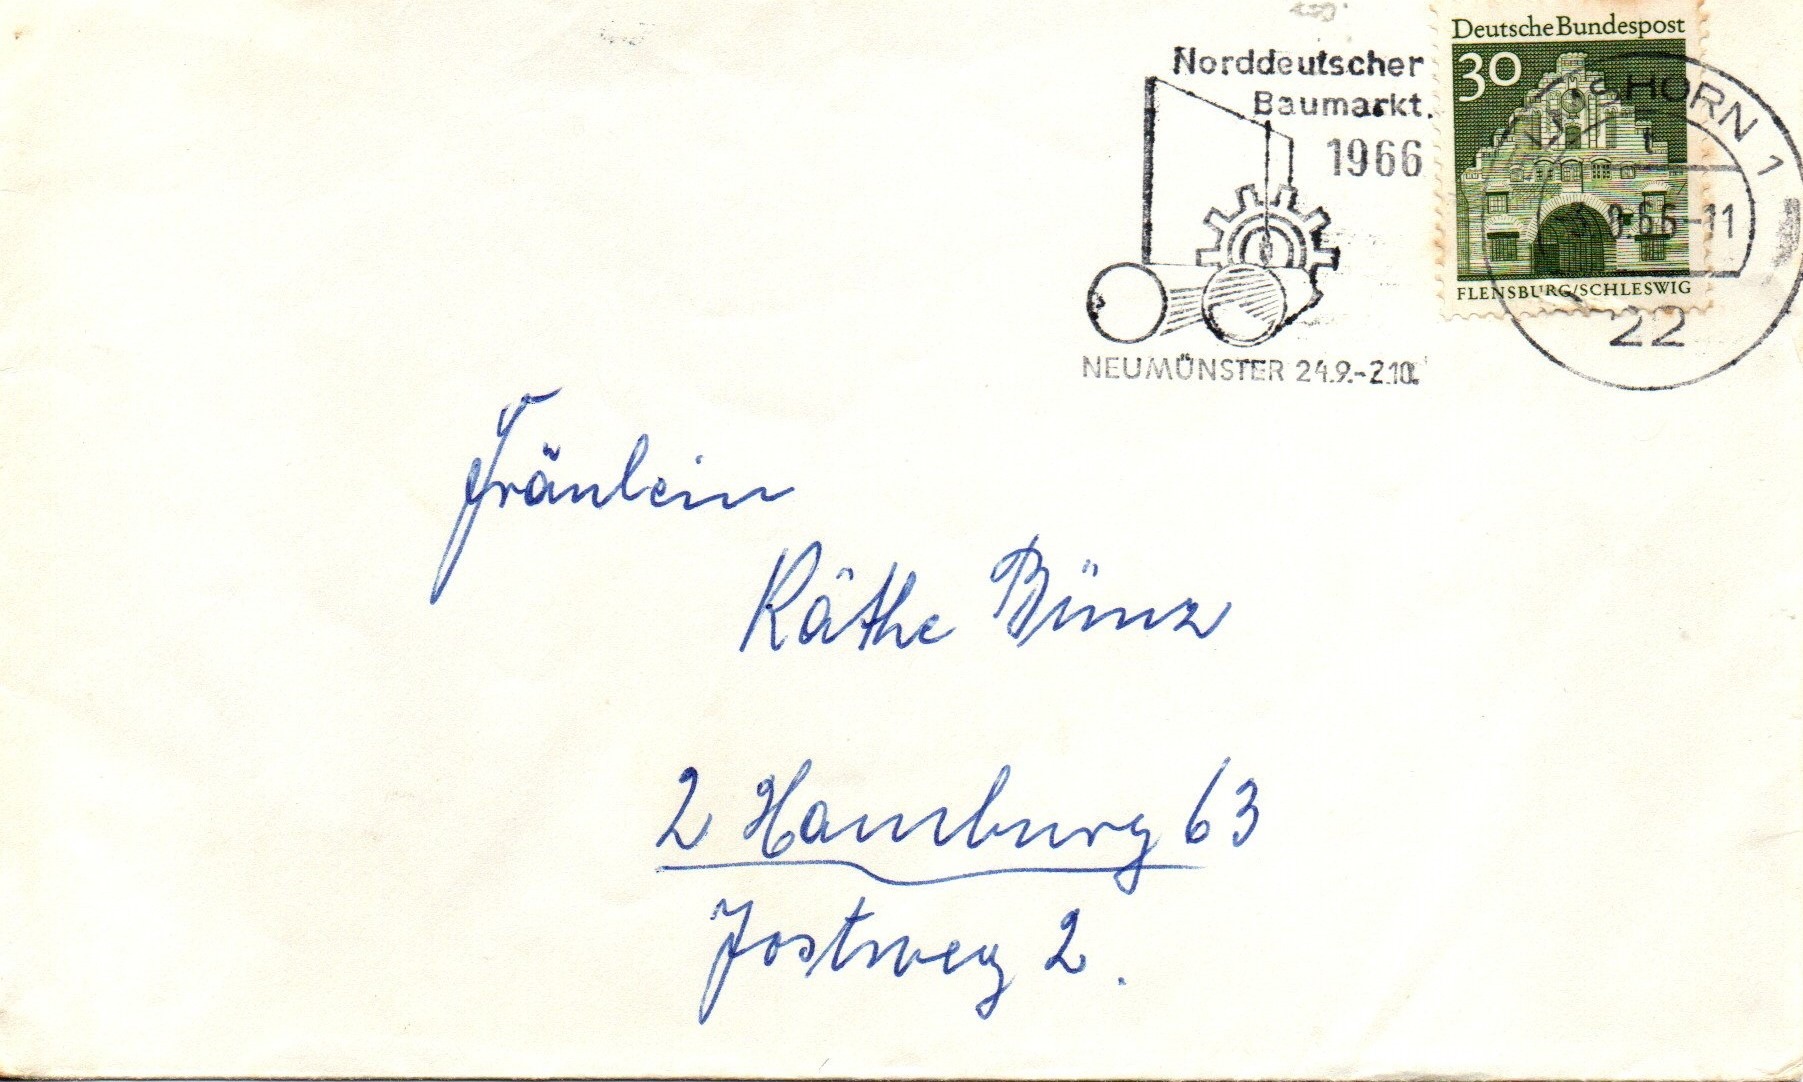 Deutsche Bundespost
30
FLENSBURG/SCHLESWIG
Norddeutscher
Baumarkt.
1966
NEUMÜNSTER 24.9.-2.10.
HORN 1
t
.66-11
22
Fräulein
Käthe Bünz
2 Hamburg 63
Jostweg 2.